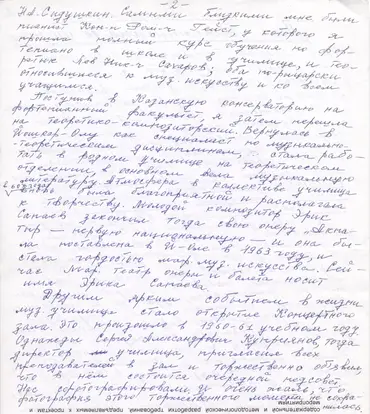 - 2 -
Н.А. Сидушкин. Самыми близкими мне были
пианист Кон-н Ром-ч Гейст, у которого я
прошла полный курс обучения по фор-
тепиано в школе и в училище, и тео-
ретик Лев Ник-ч Сахаров; оба по-рыцарски
относившиеся к муз. искусству и ко всем
учащимся.
Поступив в Казанскую консерваторию на
фортепианный факультет, я затем перешла
на теоретико-композиторский. Вернулась в
Йошкар-Олу как специалист по музыкально-
-теоретическим дисциплинам – стала рабо-
тать в родном училище на теоретическом
отделении, в основном вела музыкальную
литературу. Атмосфера в коллективе училища
была благоприятной и располагала
к творчеству. Молодой композитор Эрик
Сапаев закончил тогда свою оперу „Акпа-
тыр – первую национальную – и она бы-
ла поставлена в Й-Оле в 1963 году, и
стала гордостью мар. муз. искусства. Сей-
час Мар. театр оперы и балета носит
имя Эрика Сапаева.
Другим ярким событием в жизни
муз. училища стало открытие Концертного
зала. Это произошло в 1960-61 учебном году.
Однажды Сергей Александрович Куприянов, тогда
директор училища, пригласил всех
преподавателей в зал и торжественно объявил,
что в нём состоится очередной педсовет.
Нас сфотографировали и очень жаль, что
фотография этого торжественного момента не сохра-
нилась,